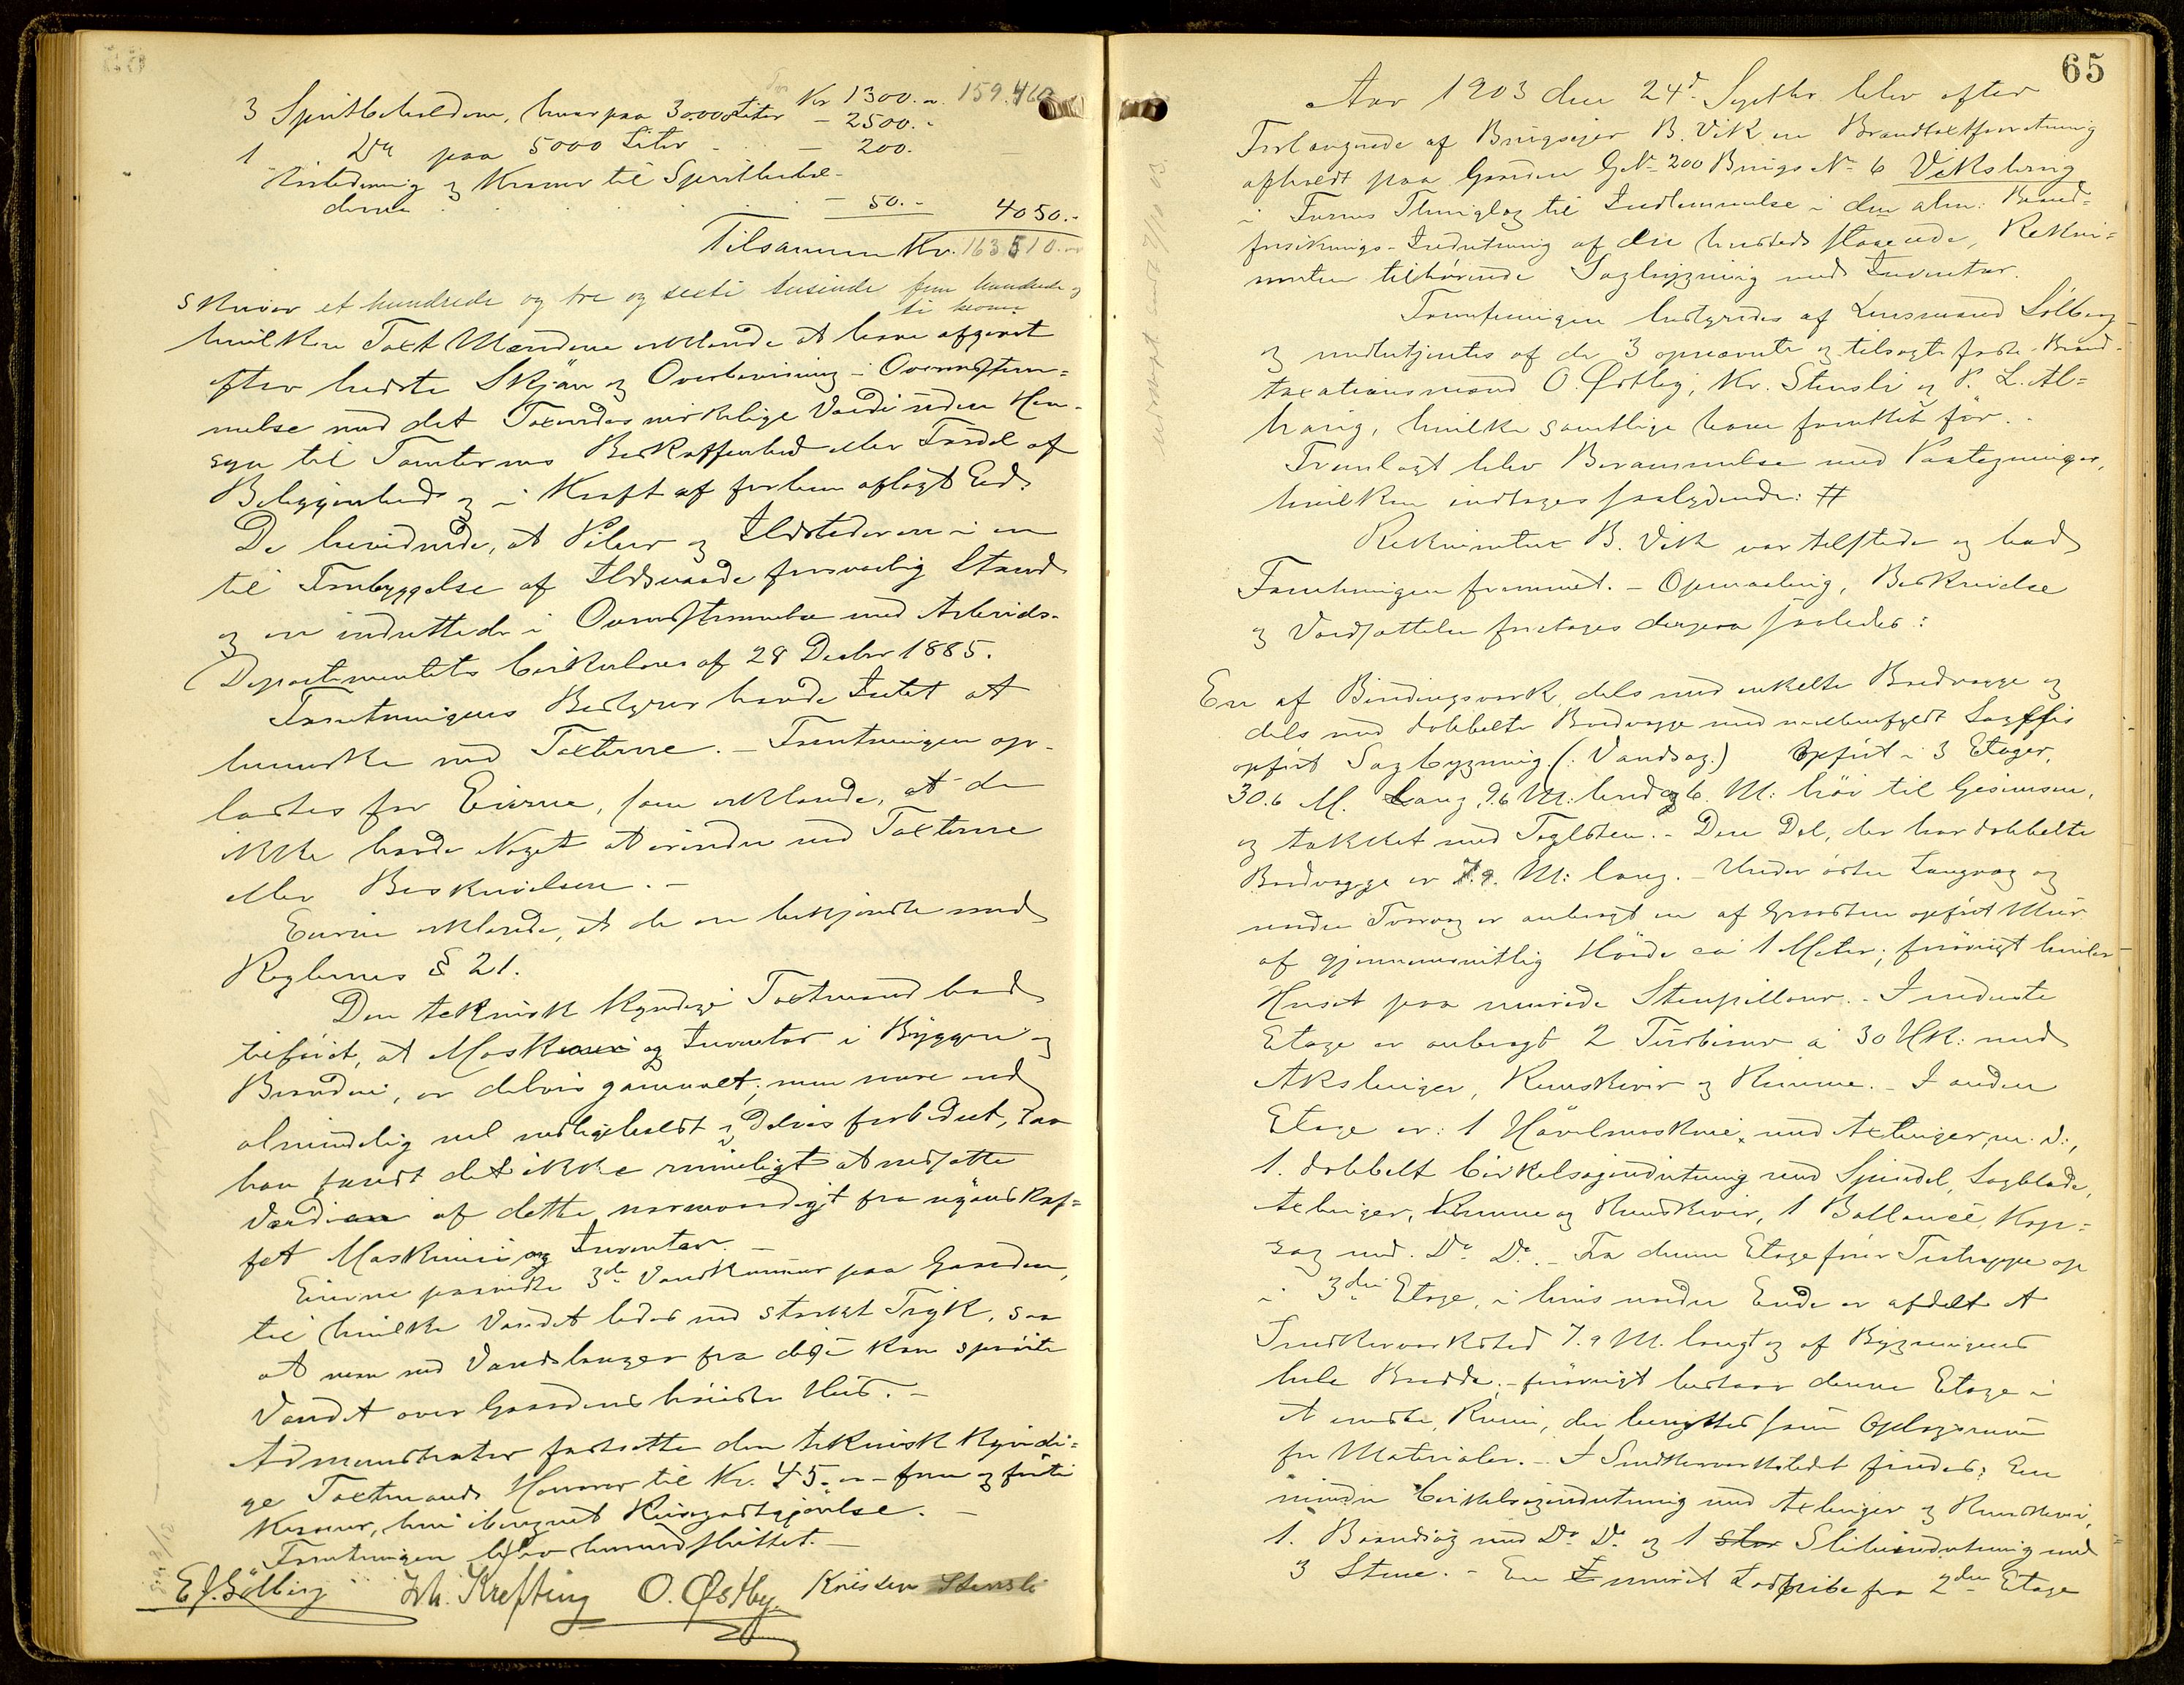 3 Spritbeholdere, hver paa 30000 Liter Kr 1300.- 159.460
1 Do paa 5000 Liter - 2500.-
Rørledning og Kraner til Spritbehol- - 200.
derne - 50.- 4050.-
Tilsammen Kr. 163510.-
skriver et hundrede og tre og sexti tusinde fem hundrede og
ti kroner
hvilken Taxt Mændene erklærede at have afgivet
efter bedste Skjøn og Overbevisning i Overensstem=
melse med det Taxeredes virkelige Værdi uden Hen-
syn til Tomternes Beskaffenhed eller Fordel af
Beliggenhed og i Kraft af forhen aflagt Ed.
De bevidnede, at Piber og Ildsteder ere i en
til Forebyggelse af Ildsvaade forsvarlig Stand
og ere indrettede i Overensstemmelse med Arbeids-
Departementets Cirkulære af 28 Decbr 1885.
Forretningens Bestyrer havde Intet at
bemærke ved Taxterne. - Forretningen op-
læstes for Eierne, som erklærede, at de
ikke havde Noget at erindre ved Taxterne
eller Beskrivelsen. -
Eierne erklærede, at de ere bekjendte med
Reglernes § 21.
Den teknisk kyndige Taxtmand bad
tilføiet, at Maskineri og Inventar i Bryggeri og
Brænderi, er delvis gammelt; men være ved
almindelig vel vedligeholdt og Delvis forbedret, saa
han fandt det ikke rimeligt at nedsætte
Værdien af dette nævneværdigt fra nyanskaf=
fet Maskineri og Inventar. -
Eierne paaviste 3de Vandkummer paa Gaarden,
til hvilke Vandet ledes med sterkt Tryk, saa
at man med Vandslanger fra disse kan sprøite
Vandet over Gaardens høieste Hus. -
Administrator fastsatte den teknisk kyndi=
ge Taxtmands Honorar til Kr. 45.- - fem ogførti
Kroner, heri iberegnet Reisegodtgjørelse. -
Forretningen blev hermed sluttet. -
E J. Sölberg Joh. Krefting O. Østby. Kristen Stensli
65
Aar 1903 den 24d Septbr. blev efter
Forlangende af Brugseier B. Vik en Brandtaxtforretning
afholdt paa Gaarden G.No 200 Brugs No 6 Viksbrug
i Furnes Thinglag til Indlemmelse i den alm: Brand=
forsikrings-Indretning af den hersteds staaende, Rekvi=
renten tilhørende Sagbygning med Inventar.
Forretningen bestyredes af Lensmand Sölberg
og medbetjentes af de 3 opnævnte og tilsagte faste Brand-
taxationsmænd O. Østby, Kr. Stensli og P. L. Al=
haug, hvilke samtlige have fremmødt før. -
Fremlagt blev Berammelse med Paategninger,
hvilken indtages saalydende: #
Rekvirenten B. Vik var tilstede og bad
Forretningen fremmet. - Opmaaling, Beskrivelse
og Værdsættelse foretoges derpaa saaledes:
En af Bindingsværk, dels med enkelte Bordvægge og
dels med dobbelte Bordvægge med mellemfyldt Sagflis
opført Sagbygning (: Vandsag.) Opført i 3 Etager,
30.6 M. lang, 9.6 M: bred og 6. M: høi til Gesimsen,
og tækket med Taglsten. - Den Del, der har dobbelte
Bordvægge er 7.9. M: lang. - Under østre Langvæg og
nedre Tvervæg er anbragt en af Graasten opført Mur
af gjennemsnitlig Høide ca 1 Meter; forøvrigt hviler
Huset paa murede Stenpillarer. - I nederste
Etage er anbragt 2 Turbiner á 30 HK. med
Akslinger, Remskiver og Remme. - I anden
Etage er: 1 Høvelmaskine, med Axlinger, m. v.,
1. dobbelt Cirkelsagindretning med Spindel, Sagblade,
Axlinger, Remme og Remskiver, 1 Ballance, Kap=
sag med. Do Do. - Fra denne Etage fører Tretrappe op
i 3die Etage, i hvis nedre Ende er afdelt et
Snedkerværksted 7.9 M. langt og af Bygningens
hele Bredde; - forøvrigt bestaar denne Etage i
et eneste Rum, der benyttes som Oplagsrum
for Materialer. - I Snedkerværkstedet findes: En
mindre Cirkelsagindretning med Axlinger og Remskiver,
1. Baandsag med Do Do og 1 stor Slibeindretning med
3 Stene. - En muret Lodpibe fra 2den Etage